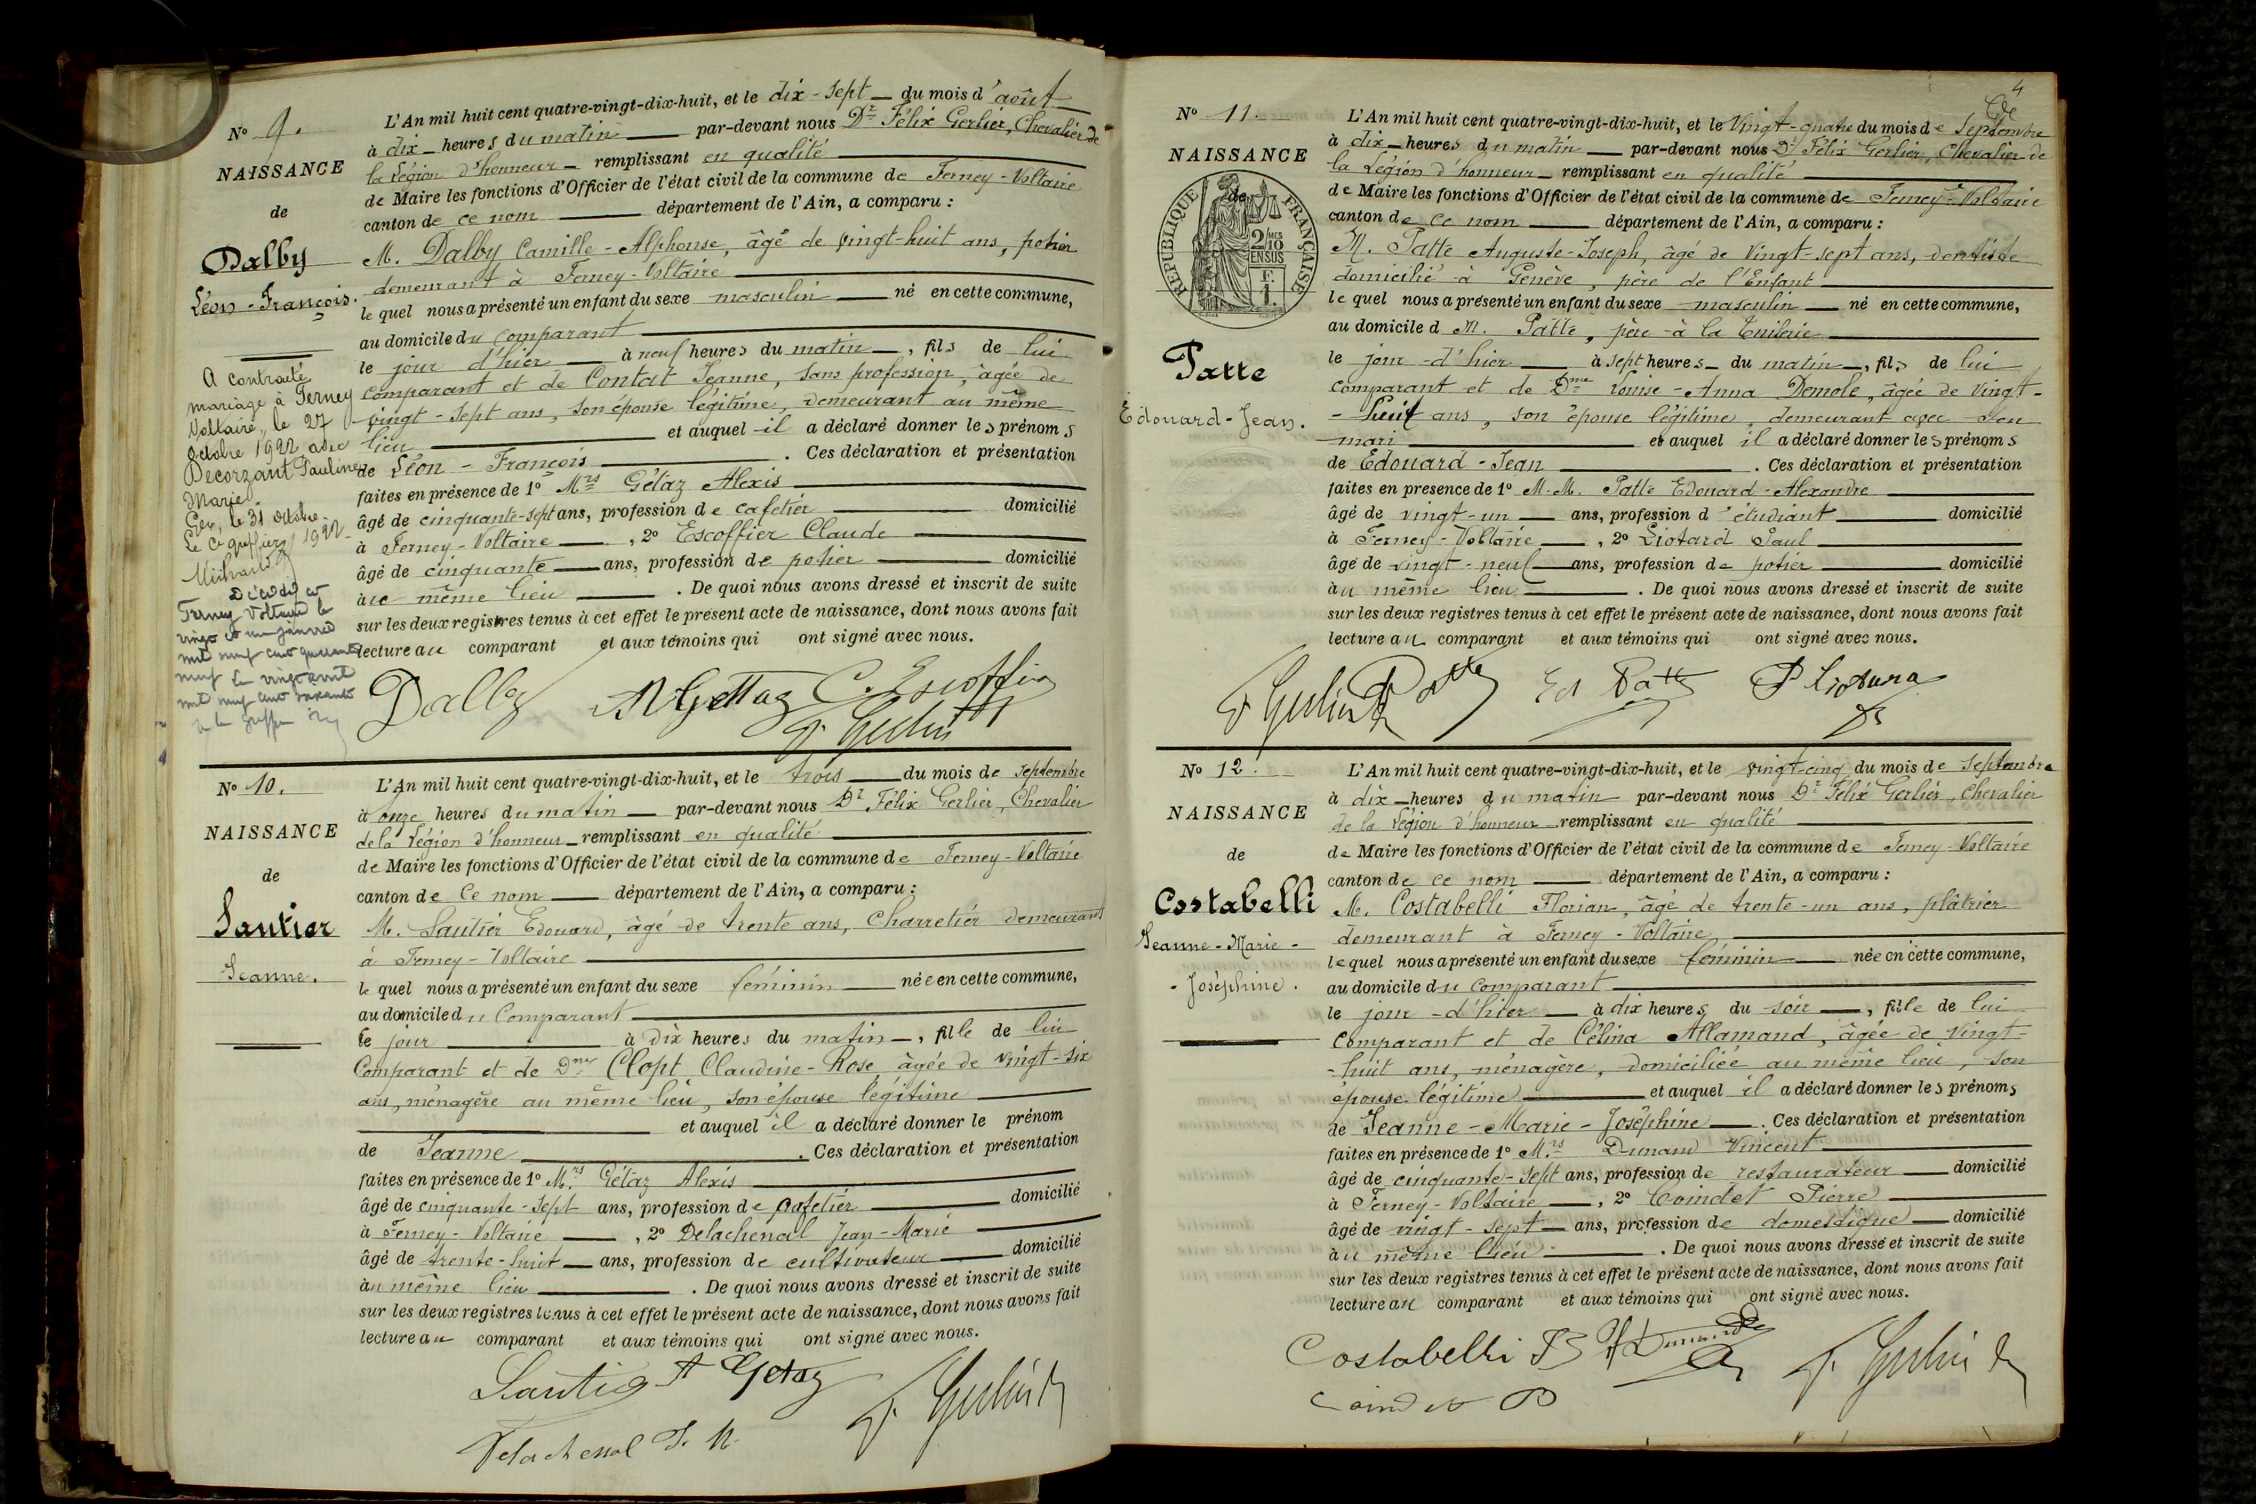 N° 9.
NAISSANCE
de
Dalby
Léon-François.
A contracté
mariage à Ferney
Voltaire, le 27
octobre 1922 avec
Decorzant Pauline
Marie.
Gex, le 31 octobre
1922
Le Cis greffier
Décédé à
Ferney Voltaire le
vingt et un janvier
mil neuf cent quarante
neuf le vingt avril
mil neuf cent soixante
L'An mil huit cent quatre-vingt-dix-huit, et le dix-sept du mois d'août
à dix heures du matin par-devant nous Dr Félix Gerlier, Chevalier de
la Légion d'honneur remplissant en qualité
de Maire les fonctions d'Officier de l'état civil de la commune de Ferney-Voltaire
canton de ce nom département de l'Ain, a comparu :
M. Dalby Camille-Alphonse, âgé de vingt-huit ans, potier
demeurant à Ferney-Voltaire
lequel nous a présenté un enfant du sexe masculin né en cette commune,
au domicile du comparant
le jour d'hier à neuf heures du matin, fils de lui
comparant et de Contat Jeanne, sans profession, âgée de
vingt-sept ans, son épouse légitime, demeurant au même
lieu et auquel il a déclaré donner les prénoms
de Léon-François. Ces déclaration et présentation
faites en présence de 1° Mrs Gétaz Alexis
âgé de cinquante-sept ans, profession de cafetier domicilié
à Ferney-Voltaire, 2° Escoffier Claude
âgé de cinquante ans, profession de potier domicilié
au même lieu. De quoi nous avons dressé et inscrit de suite
sur les deux registres tenus à cet effet le présent acte de naissance, dont nous avons fait
lecture au comparant et aux témoins qui ont signé avec nous.
Dalby A Gettaz C. Escoffier
F. Gerlier
N° 10.
NAISSANCE
de
Sautier
Jeanne.
L'An mil huit cent quatre-vingt-dix-huit, et le trois du mois de septembre
à onze heures du matin par-devant nous Dr Félix Gerlier, Chevalier
de la Légion d'honneur remplissant en qualité
de Maire les fonctions d'Officier de l'état civil de la commune de Ferney-Voltaire
canton de ce nom département de l'Ain, a comparu :
M. Sautier Edouard, âgé de trente ans, Charretier demeurant
à Ferney-Voltaire
lequel nous a présenté un enfant du sexe féminin née en cette commune,
au domicile du Comparant
le jour à dix heures du matin, fille de lui
Comparant et de Dme Clopt Claudine-Rose, âgée de vingt-six
ans, ménagère au même lieu, son épouse légitime
et auquel il a déclaré donner le prénom
de Jeanne. Ces déclaration et présentation
faites en présence de 1° Mrs Gétaz Alexis
âgé de cinquante-sept ans, profession de cafetier domicilié
à Ferney-Voltaire, 2° Delachenal Jean-Marie
âgé de trente-huit ans, profession de cultivateur domicilié
au même lieu. De quoi nous avons dressé et inscrit de suite
sur les deux registres tenus à cet effet le présent acte de naissance, dont nous avons fait
lecture au comparant et aux témoins qui ont signé avec nous.
Sautier A Getaz
F. Gerlier
Delachenal J. M.
4
N° 11.
NAISSANCE
de
RÉPUBLIQUE FRANÇAISE
2/10 MES EN SUS
F. 1.
Patte
Édouard-Jean.
L'An mil huit cent quatre-vingt-dix-huit, et le vingt-quatre du mois de septembre
à dix heures du matin par-devant nous Dr Félix Gerlier, Chevalier de
la Légion d'honneur remplissant en qualité
de Maire les fonctions d'Officier de l'état civil de la commune de Ferney-Voltaire
canton de ce nom département de l'Ain, a comparu :
M. Patte Auguste-Joseph, âgé de vingt-sept ans, dentiste
domicilié à Genève, père de l'Enfant
lequel nous a présenté un enfant du sexe masculin né en cette commune,
au domicile d M. Patte, père à la Tuilerie
le jour d'hier à sept heures du matin, fils de lui
comparant et de Dme Louise-Anna Demole, âgée de vingt-
-huit ans, son épouse légitime, demeurant avec son
mari et auquel il a déclaré donner les prénoms
de Edouard-Jean. Ces déclaration et présentation
faites en présence de 1° M.M. Patte Edouard-Alexandre
âgé de vingt-un ans, profession d'étudiant domicilié
à Ferney-Voltaire, 2° Liotard Paul
âgé de vingt-neuf ans, profession de potier domicilié
au même lieu. De quoi nous avons dressé et inscrit de suite
sur les deux registres tenus à cet effet le présent acte de naissance, dont nous avons fait
lecture au comparant et aux témoins qui ont signé avec nous.
F Gerlier Patte Ed Patte P Liotard
N° 12.
NAISSANCE
de
Costabelli
Jeanne-Marie-
-Joséphine.
L'An mil huit cent quatre-vingt-dix-huit, et le vingt-cinq du mois de septembre
à dix heures du matin par-devant nous Dr Félix Gerlier, Chevalier
de la Légion d'honneur remplissant en qualité
de Maire les fonctions d'Officier de l'état civil de la commune de Ferney-Voltaire
canton de ce nom département de l'Ain, a comparu :
M. Costabelli Florian, âgé de trente-un ans, plâtrier
demeurant à Ferney-Voltaire
lequel nous a présenté un enfant du sexe féminin née en cette commune,
au domicile du comparant
le jour d'hier à dix heures du soir, fille de lui
comparant et de Célina Allamand, âgée de vingt-
-huit ans, ménagère, domiciliée au même lieu, son
épouse légitime et auquel il a déclaré donner les prénoms
de Jeanne-Marie-Joséphine. Ces déclaration et présentation
faites en présence de 1° Mrs Dunand Vincent
âgé de cinquante-sept ans, profession de restaurateur domicilié
à Ferney-Voltaire, 2° Coindet Pierre
âgé de vingt-sept ans, profession de domestique domicilié
au même lieu. De quoi nous avons dressé et inscrit de suite
sur les deux registres tenus à cet effet le présent acte de naissance, dont nous avons fait
lecture au comparant et aux témoins qui ont signé avec nous.
Costabelli Dunand F. Gerlier
Coindet P